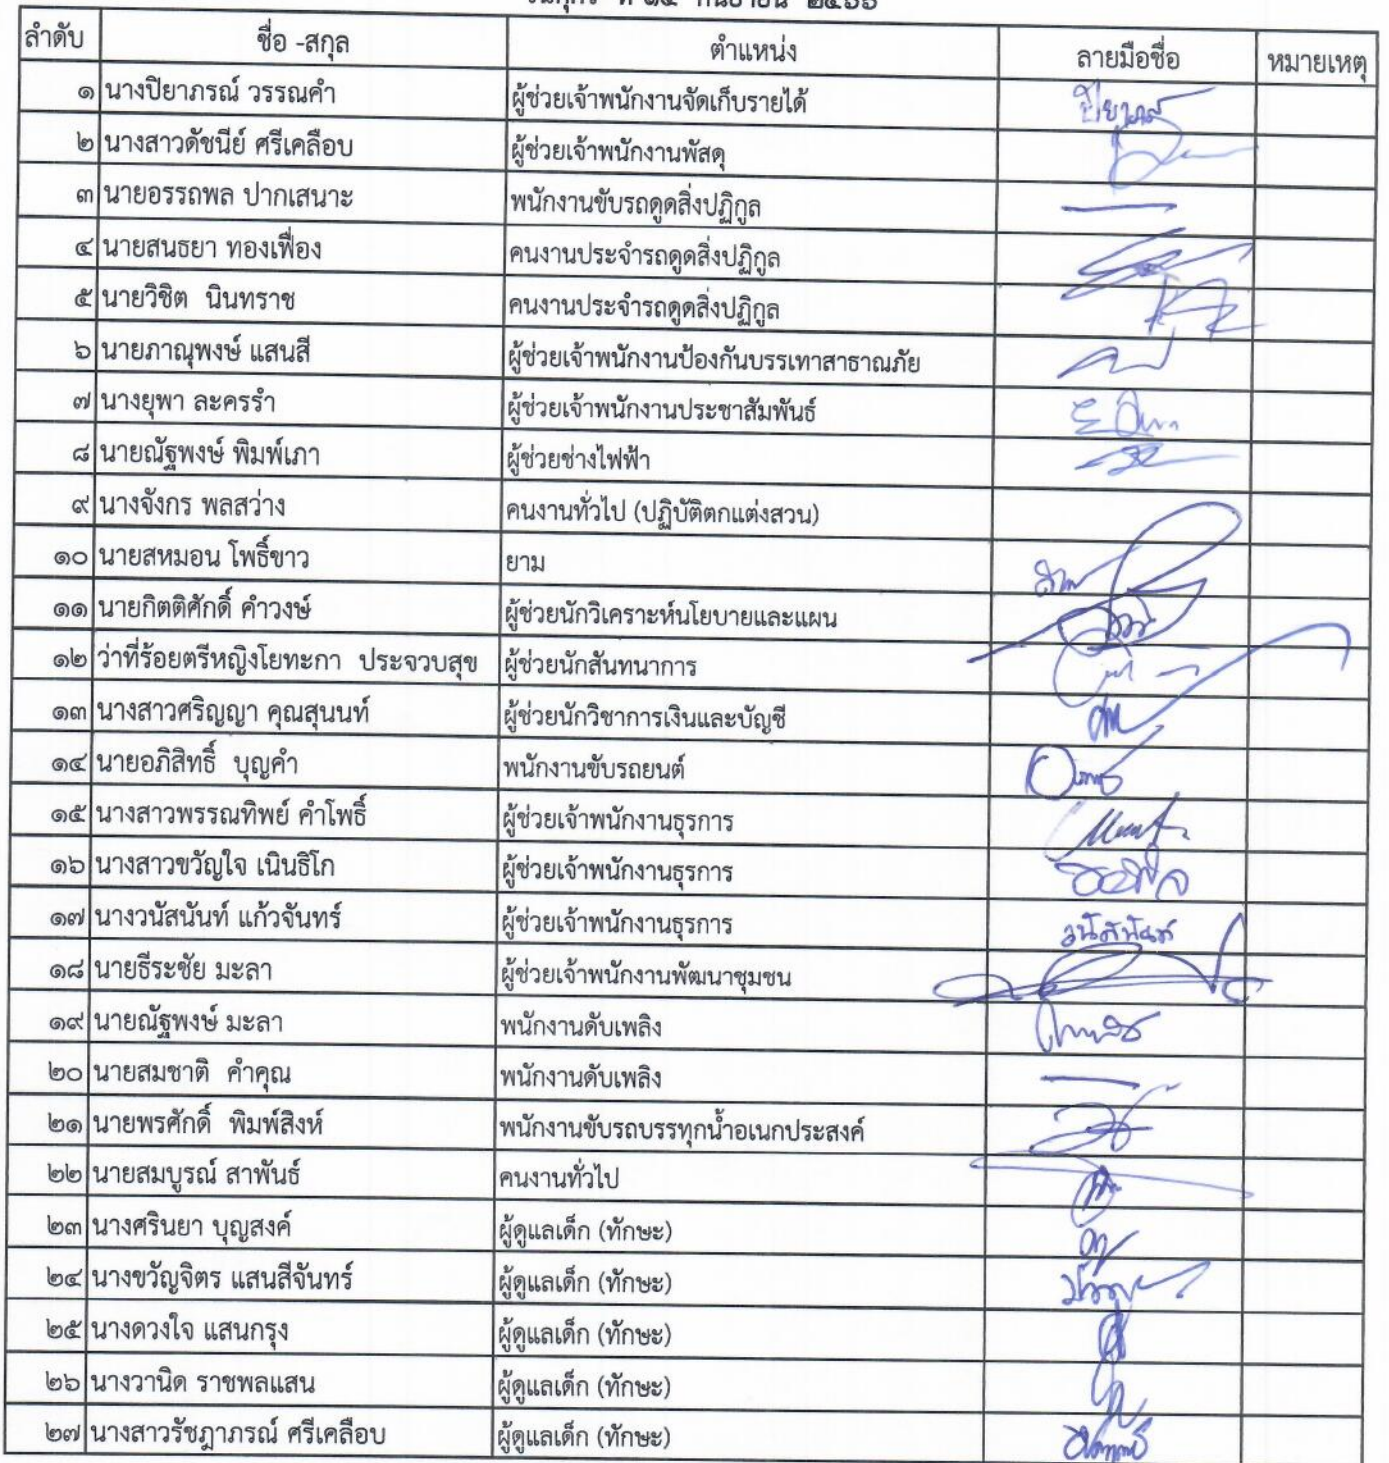 ลำดับ ชื่อ -สกุล ตำแหน่ง ลายมือชื่อ หมายเหตุ
๑ นางปิยาภรณ์ วรรณคำ ผู้ช่วยเจ้าพนักงานจัดเก็บรายได้
๒ นางสาวดัชนีย์ ศรีเคลือบ ผู้ช่วยเจ้าพนักงานพัสดุ
๓ นายอรรถพล ปากเสนาะ พนักงานขับรถดูดสิ่งปฏิกูล
๔ นายสนธยา ทองเฟื่อง คนงานประจำรถดูดสิ่งปฏิกูล
๕ นายวิชิต นินทราช คนงานประจำรถดูดสิ่งปฏิกูล
๖ นายภาณุพงษ์ แสนสี ผู้ช่วยเจ้าพนักงานป้องกันบรรเทาสาธาณภัย
๗ นางยุพา ละครรำ ผู้ช่วยเจ้าพนักงานประชาสัมพันธ์
๘ นายณัฐพงษ์ พิมพ์เภา ผู้ช่วยช่างไฟฟ้า
๙ นางจังกร พลสว่าง คนงานทั่วไป (ปฏิบัติตกแต่งสวน)
๑๐ นายสหมอน โพธิ์ขาว ยาม
๑๑ นายกิตติศักดิ์ คำวงษ์ ผู้ช่วยนักวิเคราะห์นโยบายและแผน
๑๒ ว่าที่ร้อยตรีหญิงโยทะกา ประจวบสุข ผู้ช่วยนักสันทนาการ
๑๓ นางสาวศริญญา คุณสุนนท์ ผู้ช่วยนักวิชาการเงินและบัญชี
๑๔ นายอภิสิทธิ์ บุญคำ พนักงานขับรถยนต์
๑๕ นางสาวพรรณทิพย์ คำโพธิ์ ผู้ช่วยเจ้าพนักงานธุรการ
๑๖ นางสาวขวัญใจ เนินธิโก ผู้ช่วยเจ้าพนักงานธุรการ
๑๗ นางวนัสนันท์ แก้วจันทร์ ผู้ช่วยเจ้าพนักงานธุรการ วนัสนันท์
๑๘ นายธีระชัย มะลา ผู้ช่วยเจ้าพนักงานพัฒนาชุมชน
๑๙ นายณัฐพงษ์ มะลา พนักงานดับเพลิง
๒๐ นายสมชาติ คำคุณ พนักงานดับเพลิง
๒๑ นายพรศักดิ์ พิมพ์สิงห์ พนักงานขับรถบรรทุกน้ำอเนกประสงค์
๒๒ นายสมบูรณ์ สาพันธ์ คนงานทั่วไป
๒๓ นางศรินยา บุญสงค์ ผู้ดูแลเด็ก (ทักษะ)
๒๔ นางขวัญจิตร แสนสีจันทร์ ผู้ดูแลเด็ก (ทักษะ)
๒๕ นางดวงใจ แสนกรุง ผู้ดูแลเด็ก (ทักษะ)
๒๖ นางวานิด ราชพลแสน ผู้ดูแลเด็ก (ทักษะ)
๒๗ นางสาวรัชฎาภรณ์ ศรีเคลือบ ผู้ดูแลเด็ก (ทักษะ)